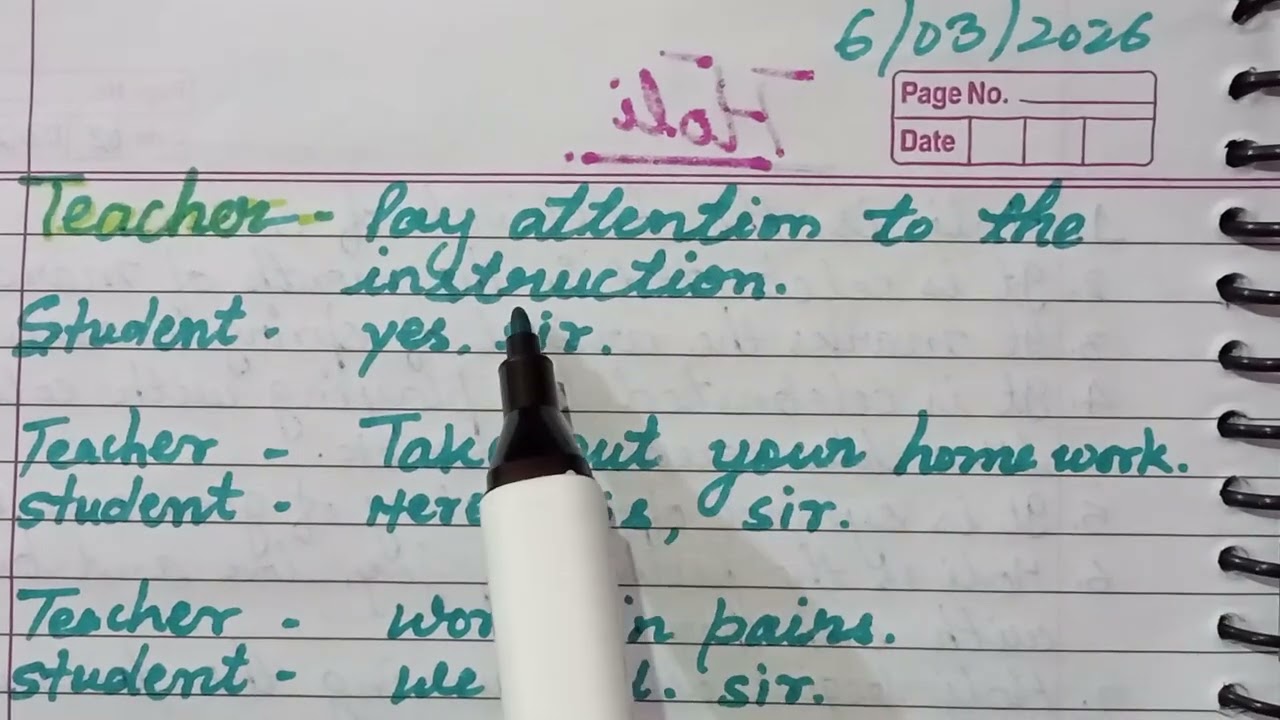 6/03/2026
Holi
Page No.
Date
Teacher - Pay attention to the
instruction.
Student - yes, sir.
Teacher - Take out your home work.
student - Here is, sir.
Teacher - work in pairs.
student - we sir.